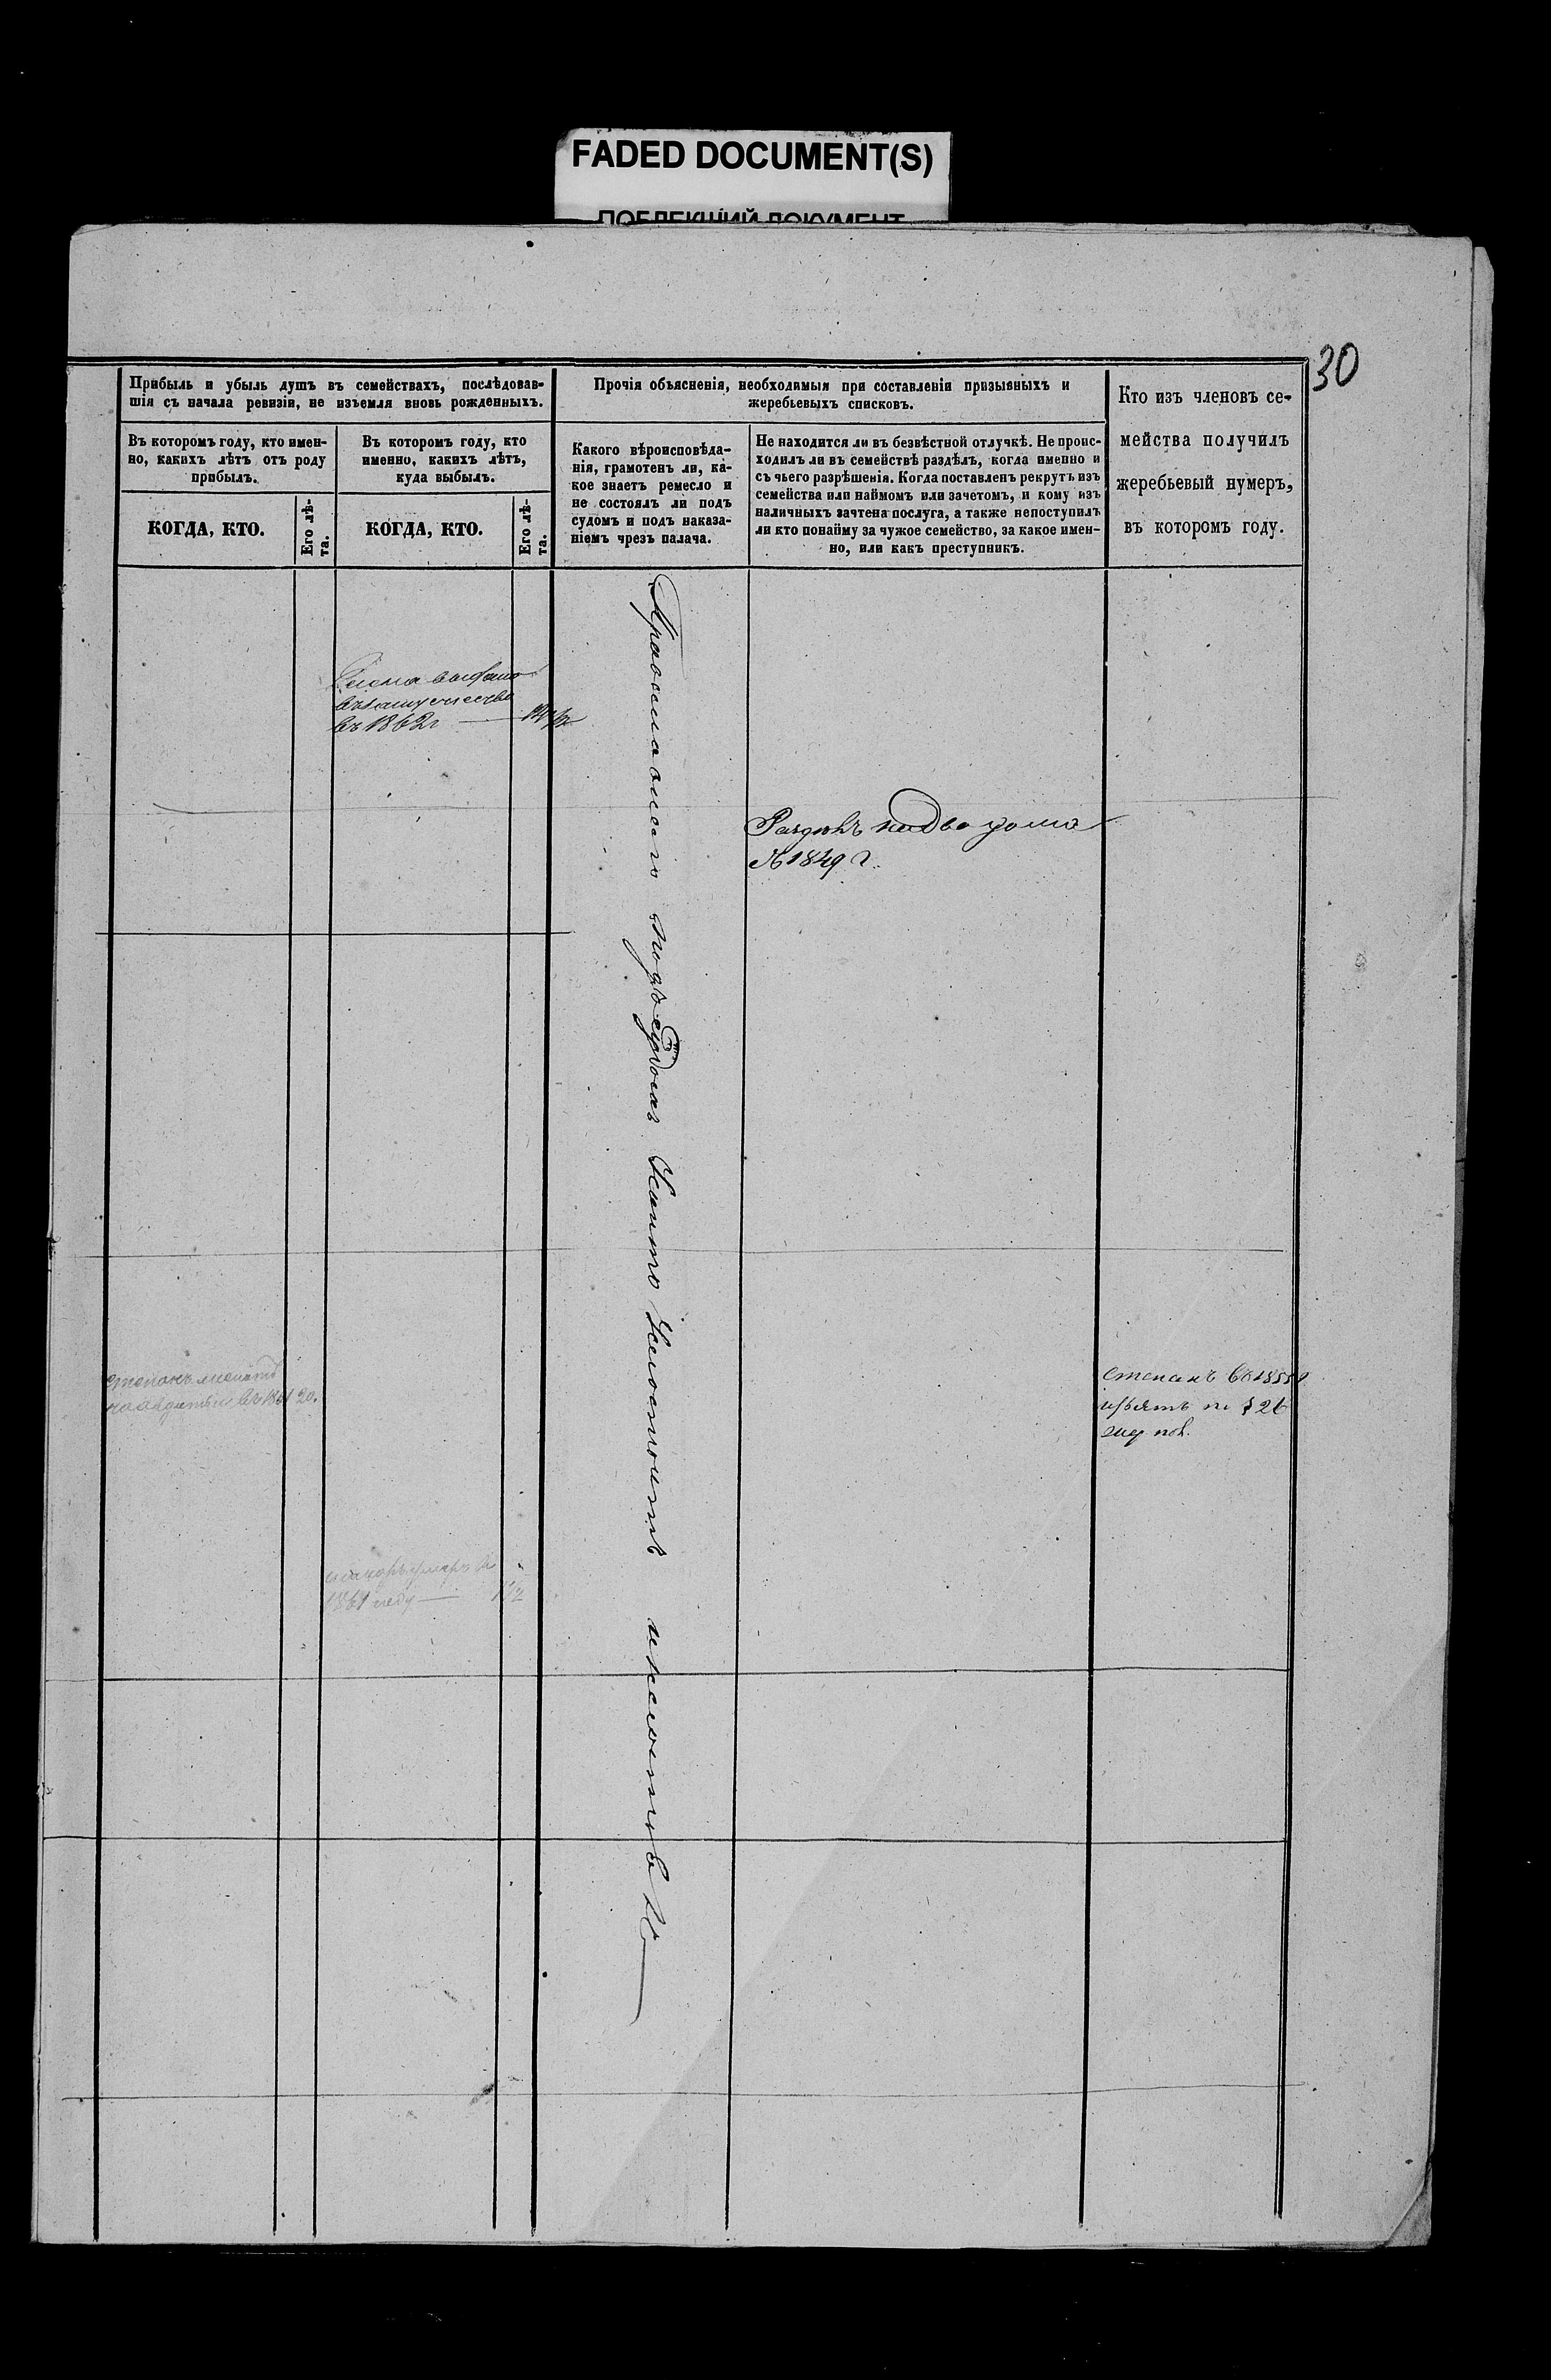 FADED DOCUMENT(S)
ПОБЛЕКШИЙ ДОКУМЕНТ
30
Прибыль и убыль душъ въ семействахъ, послѣдовав-
шія съ начала ревизіи, не изъемля вновь рожденныхъ.
Въ которомъ году, кто имен-
но, какихъ лѣтъ отъ роду
прибылъ.
КОГДА, КТО.
Его лѣ-
та.
Въ которомъ году, кто
именно, какихъ лѣтъ,
куда выбылъ.
КОГДА, КТО.
Его лѣ-
та.
Прочія объясненія, необходимыя при составленіи призывныхъ и
жеребьевыхъ списковъ.
Какого вѣроисповѣда-
нія, грамотенъ ли, ка-
кое знаетъ ремесло и
не состоялъ ли подъ
судомъ и подъ наказа-
ніемъ чрезъ палача.
Не находится ли въ безвѣстной отлучкѣ. Не проис-
ходилъ ли въ семействѣ раздѣлъ, когда именно и
съ чьего разрѣшенія. Когда поставленъ рекрутъ изъ
семейства или наймомъ или зачетомъ, и кому изъ
наличныхъ зачтена послуга, а также непоступилъ
ли кто понайму за чужое семейство, за какое имен-
но, или какъ преступникъ.
Кто изъ членовъ се-
мейства получилъ
жеребьевый нумеръ,
въ которомъ году.
выдана
въ замужество
въ 1862г
Православнаго подъ судомъ никто несостоитъ
Раздѣлъ на два дома
1849 г.
Степанъ
20.
умеръ въ
1861 году
Степанъ
изъятъ по § 26